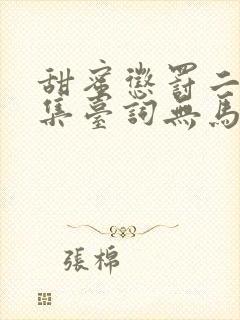 甜蜜懲罰二
集臺詞無馬
張棉